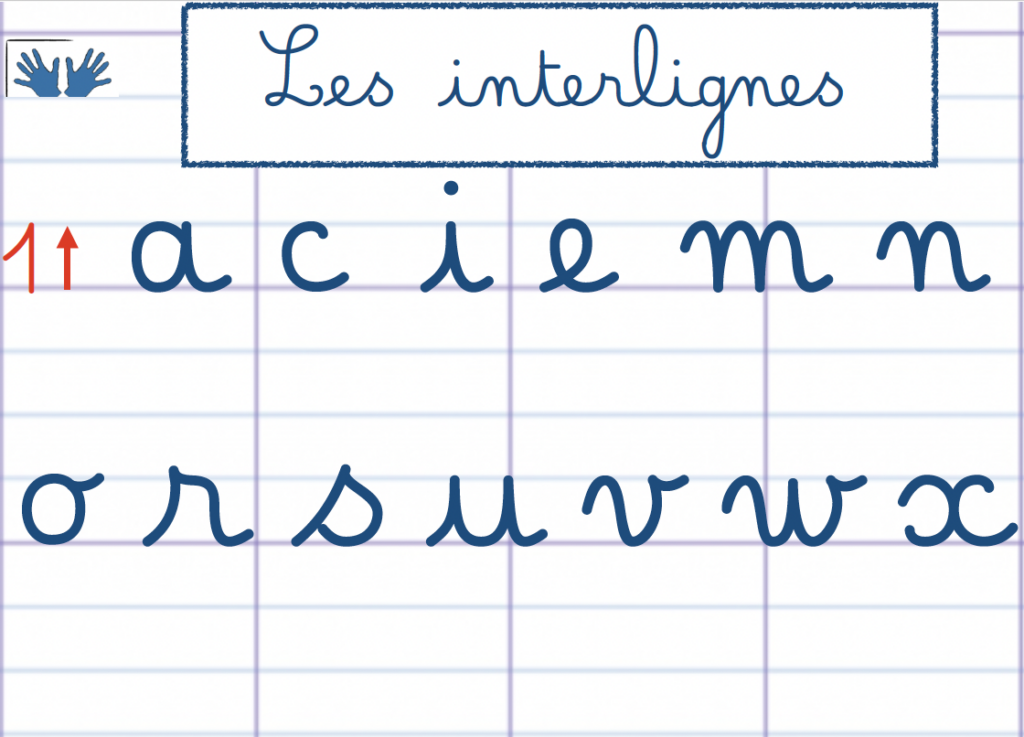 Les interlignes
1 a c i e m n
o r s u v w x